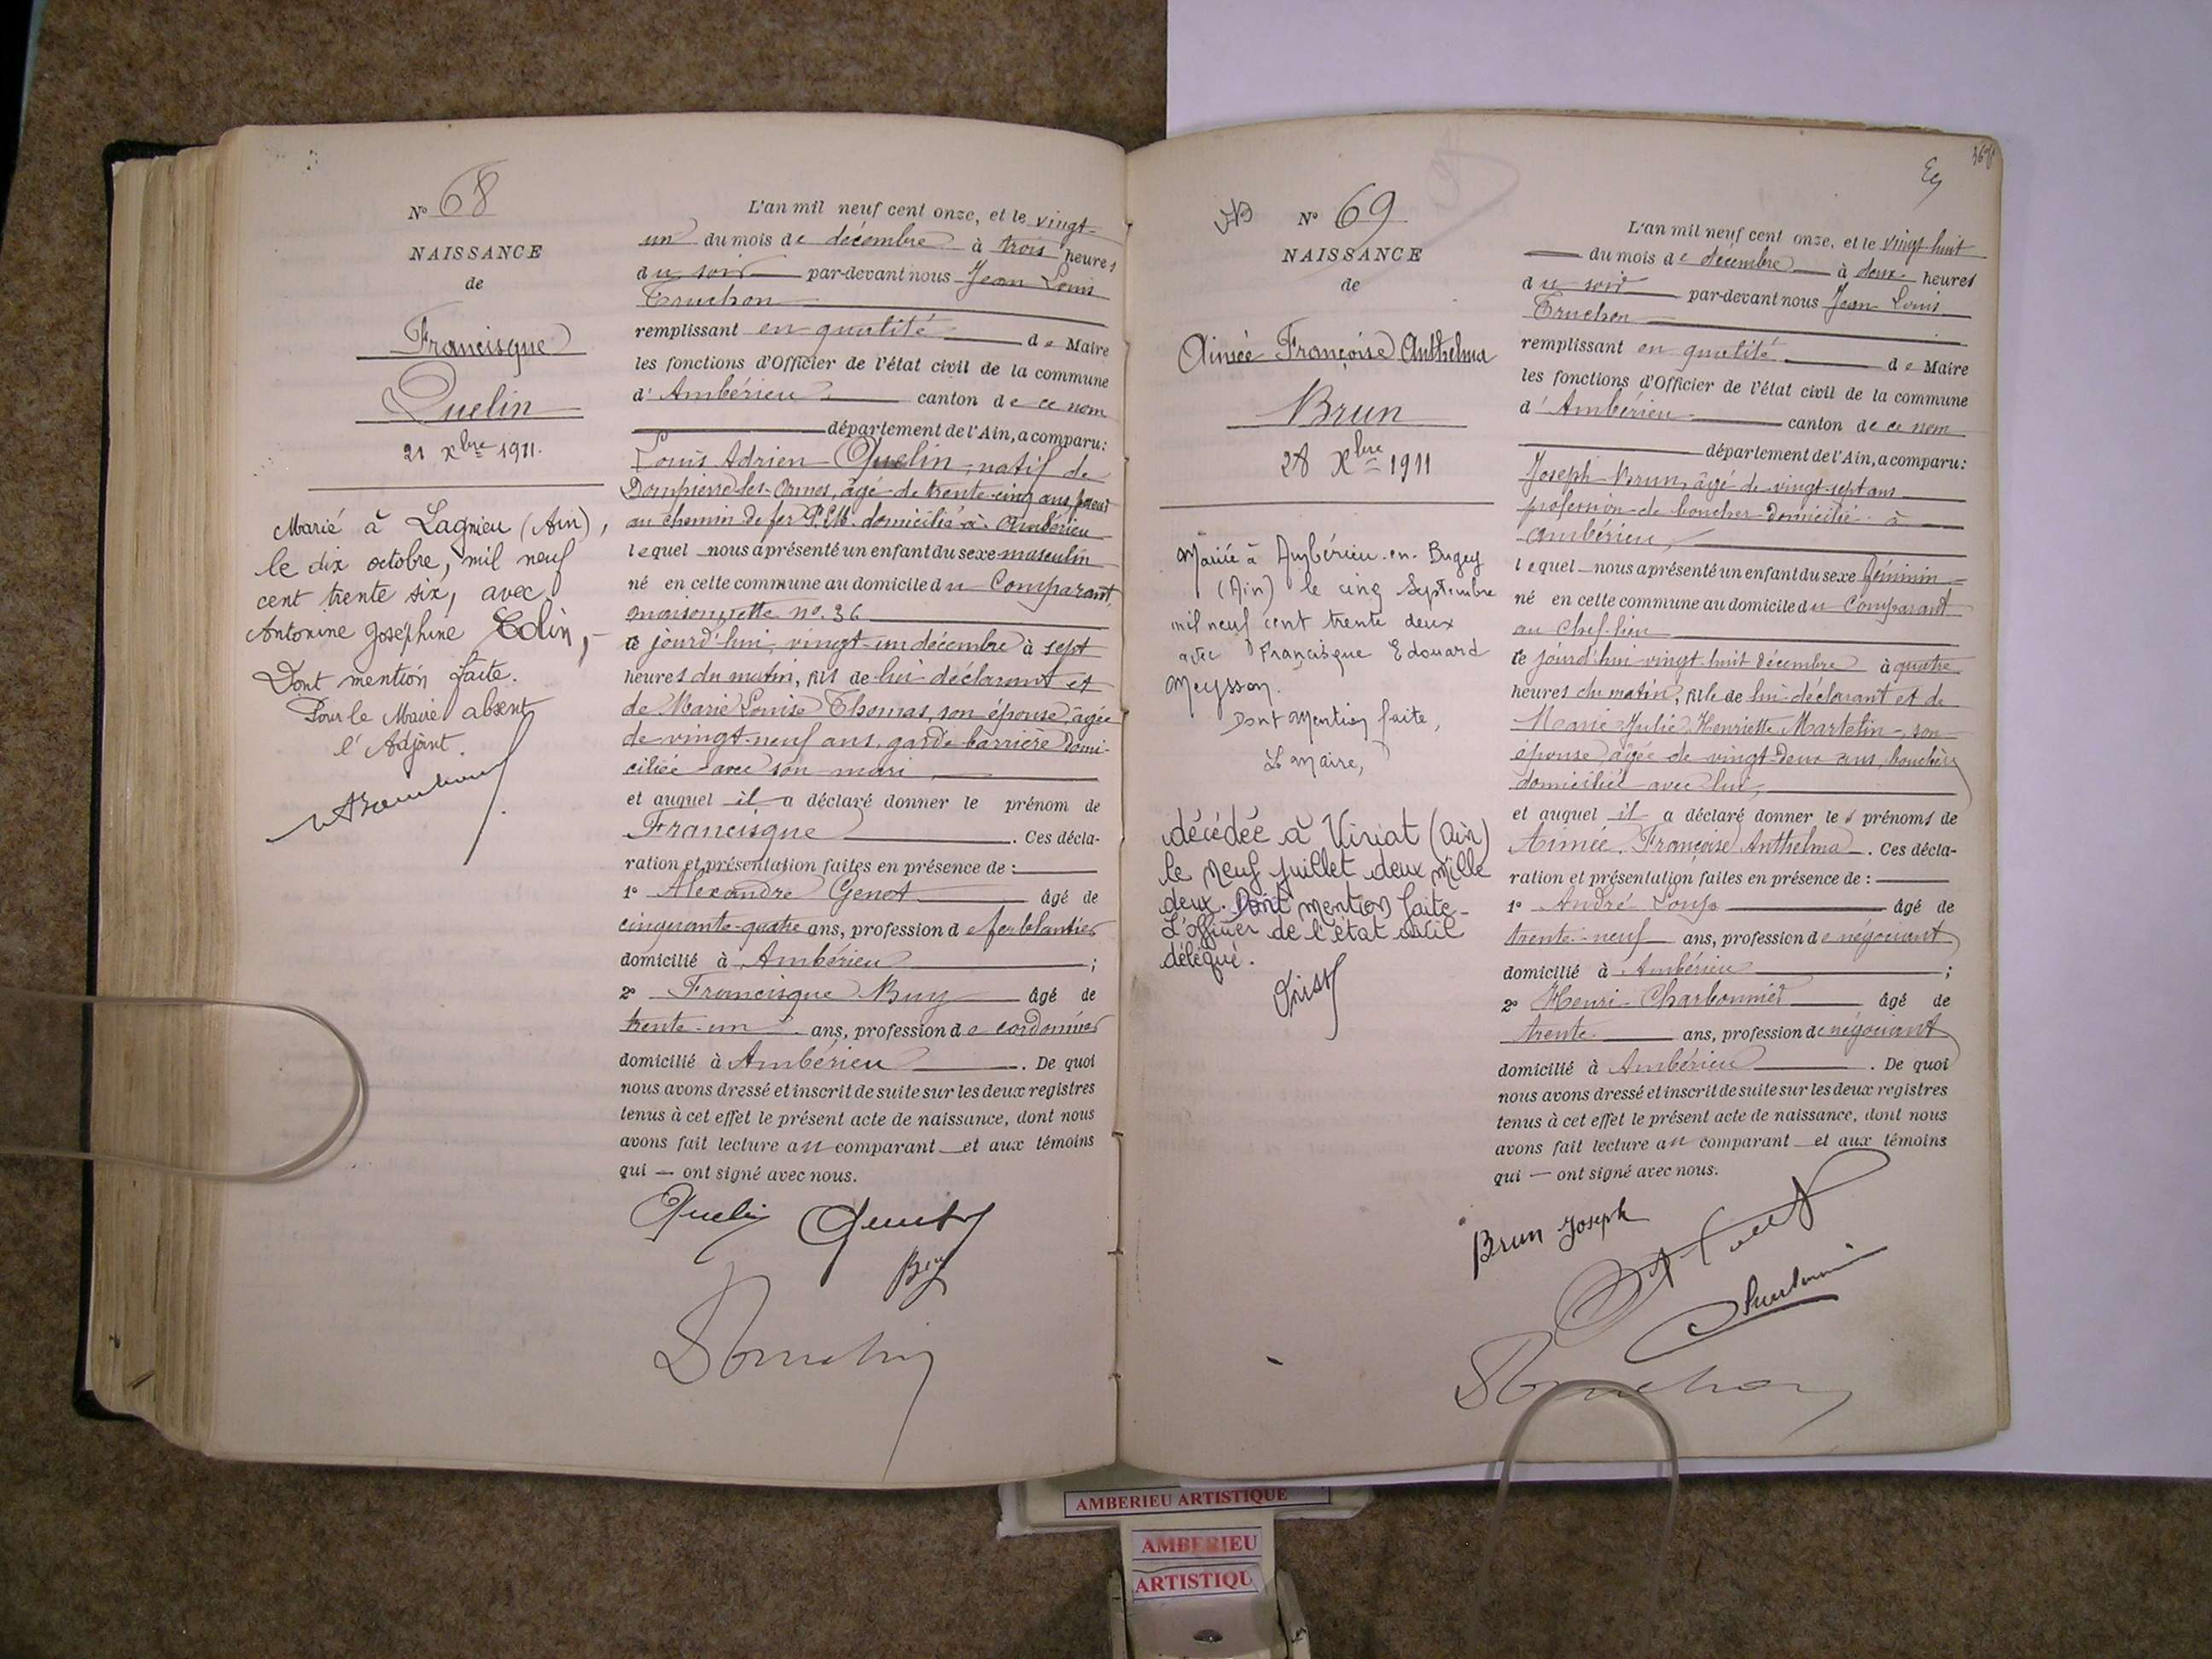 N° 68
NAISSANCE
de
Francisque
Quelin
21 Xbre 1911.
Marié à Lagnieu (Ain),
le dix octobre, mil neuf
cent trente six, avec
Antonine Joséphine Colin,
Dont mention faite.
Pour le Maire absent
l'Adjoint.
L'an mil neuf cent onze, et le vingt-
un du mois de décembre à trois heures
du soir par-devant nous Jean Louis
Truchon
remplissant en qualité de Maire
les fonctions d'Officier de l'état civil de la commune
d'Ambérieu canton de ce nom
département de l'Ain, a comparu:
Louis Adrien Quelin, natif de
Dompierre-les-Ormes, âgé de trente-cinq ans
au chemin de fer P.L.M. domicilié à Ambérieu
lequel nous a présenté un enfant du sexe masculin
né en cette commune au domicile du Comparant,
maisonnette no. 36
ce jourd'hui, vingt-un décembre à sept
heures du matin, fils de lui déclarant et
de Marie Louise Thomas, son épouse, âgée
de vingt-neuf ans, garde barrière domi-
ciliée avec son mari
et auquel il a déclaré donner le prénom de
Francisque. Ces décla-
ration et présentation faites en présence de :
1° Alexandre Genot âgé de
cinquante-quatre ans, profession de ferblantier
domicilié à Ambérieu ;
2° Francisque Buy âgé de
trente-un ans, profession de cordonnier
domicilié à Ambérieu. De quoi
nous avons dressé et inscrit de suite sur les deux registres
tenus à cet effet le présent acte de naissance, dont nous
avons fait lecture au comparant et aux témoins
qui — ont signé avec nous.
Quelin
Buy
Truchon
N° 69
NAISSANCE
de
Aimée Françoise Anthelma
Brun
28 Xbre 1911
Mariée à Ambérieu-en-Bugey
(Ain) le cinq Septembre
mil neuf cent trente deux
avec Francisque Edouard
Meysson.
Dont Mention faite,
Le Maire,
décédée à Viriat (Ain)
le neuf juillet deux mille
deux. Dont mention faite-
L'officier de l'état civil
délégué.
L'an mil neuf cent onze, et le vingt-huit
du mois de décembre à deux heures
du soir par-devant nous Jean Louis
Truchon
remplissant en qualité de Maire
les fonctions d'Officier de l'état civil de la commune
d'Ambérieu canton de ce nom
département de l'Ain, a comparu:
Joseph Brun, âgé de vingt-sept ans
profession de boucher domicilié à
Ambérieu,
lequel nous a présenté un enfant du sexe féminin
né en cette commune au domicile du Comparant
au Chef-lieu
ce jourd'hui vingt-huit décembre à quatre
heures du matin, fille de lui déclarant et de
Marie Julie Henriette Martelin, son
épouse, âgée de vingt-deux ans, bouchère
domiciliée avec lui,
et auquel il a déclaré donner les prénoms de
Aimée Françoise Anthelma. Ces décla-
ration et présentation faites en présence de :
1° André âgé de
trente-neuf ans, profession de négociant
domicilié à Ambérieu ;
2° Henri Charbonnier âgé de
trente ans, profession de négociant
domicilié à Ambérieu. De quoi
nous avons dressé et inscrit de suite sur les deux registres
tenus à cet effet le présent acte de naissance, dont nous
avons fait lecture au comparant et aux témoins
qui — ont signé avec nous.
Brun Joseph
Truchon
AMBERIEU ARTISTIQUE
AMBERIEU
ARTISTIQU